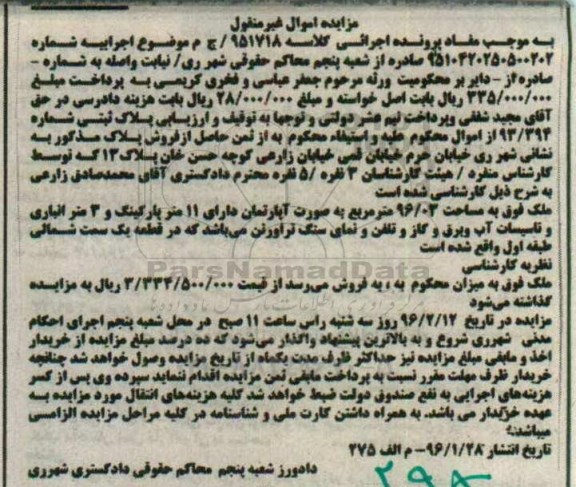 مزایده اموال غیرمنقول
به موجب مفاد پرونده اجرائی کلاسه ۹۵۱۷۱۸ / ج م موضوع اجراییه شماره
۹۵۱۰۴۲۰۲۵۰۵۰۰۲۰۲ صادره از شعبه پنجم محاکم حقوقی شهر ری/ نیابت واصله به شماره -
صادره از - دایر بر محکومیت ورثه مرحوم جعفر عباسی و فخری کریمی به پرداخت مبلغ
۳۳۵/۰۰۰/۰۰۰ ریال بابت اصل خواسته و مبلغ ۲۸/۰۰۰/۰۰۰ ریال بابت هزینه دادرسی در حق
آقای مجید شفقی وپرداخت نیم عشر دولتی و توجها به توقیف و ارزیابی پلاک ثبتی شماره
۹۳/۳۹۴ از اموال محکوم علیه و استیفاء محکوم به از ثمن حاصل ازفروش پلاک مذکور به
نشانی شهر ری خیابان حرم خیابان قمی خیابان زارعی کوچه حسن خان پلاک ۱۳ که توسط
کارشناس منفرد / هیئت کارشناسان ۳ نفره /۵ نفره محترم دادگستری آقای محمدصادق زارعی
به شرح ذیل کارشناسی شده است
ملک فوق به مساحت ۹۶/۰۳ مترمربع به صورت آپارتمان دارای ۱۱ متر پارکینگ و ۳ متر انباری
و تاسیسات آب وبرق و گاز و تلفن و نمای سنگ تراورتن می‌باشد که در قطعه یک سمت شمالی
طبقه اول واقع شده است
نظریه کارشناسی
ملک فوق به میزان محکوم به ، به فروش می‌رسد از قیمت ۳/۳۳۴/۵۰۰/۰۰۰ ریال به مزایده
گذاشته می‌شود
مزایده در تاریخ ۹۶/۲/۱۲ روز سه شنبه راس ساعت ۱۱ صبح در محل شعبه پنجم اجرای احکام
مدنی شهرری شروع و به بالاترین پیشنهاد واگذار می‌شود که ده درصد مبلغ مزایده از خریدار
اخذ و مابقی مبلغ مزایده نیز حداکثر ظرف مدت یکماه از تاریخ مزایده وصول خواهد شد چنانچه
خریدار ظرف مهلت مقرر نسبت به پرداخت مابقی ثمن مزایده اقدام ننماید سپرده وی پس از کسر
هزینه‌های اجرایی به نفع صندوق دولت ضبط خواهد شد کلیه هزینه‌های انتقال مورد مزایده به
عهده خریدار می باشد. به همراه داشتن کارت ملی و شناسنامه در کلیه مراحل مزایده الزامی
میباشد.
تاریخ انتشار ۹۶/۱/۲۸- م الف ۲۷۵
دادورز شعبه پنجم محاکم حقوقی دادگستری شهرری
۲۹۸
ParsNamadData